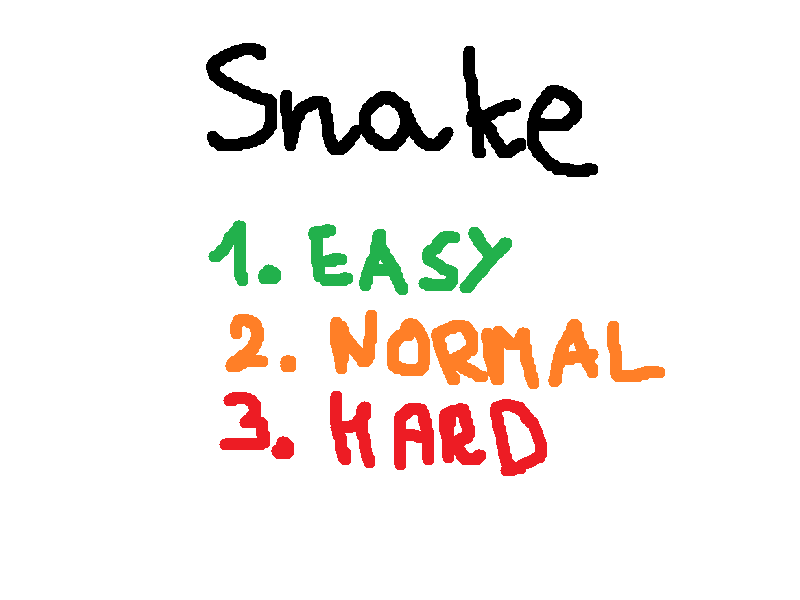 Snake
1. EASY
2. NORMAL
3. HARD